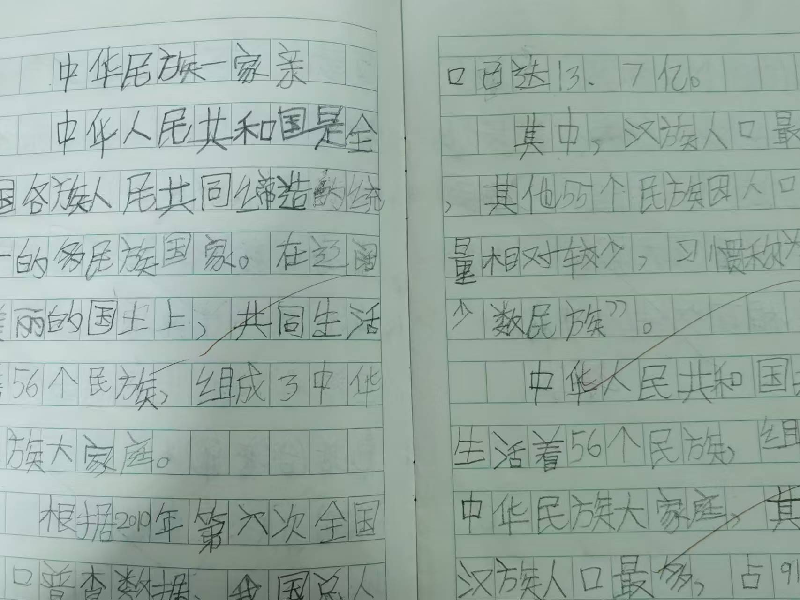 中华民族一家亲
中华人民共和国是全
国各族人民共同缔造的统
一的多民族国家。在辽阔
美丽的国土上，共同生活
着56个民族，组成了中华
族大家庭。
根据2010年第六次全国
口普查数据，我国总人
口已达13.7亿。
其中，汉族人口最
，其他55个民族因人口
量相对较少，习惯称为
少数民族”。
中华人民共和国
生活着56个民族，组
中华民族大家庭，其
汉族人口最多，占91